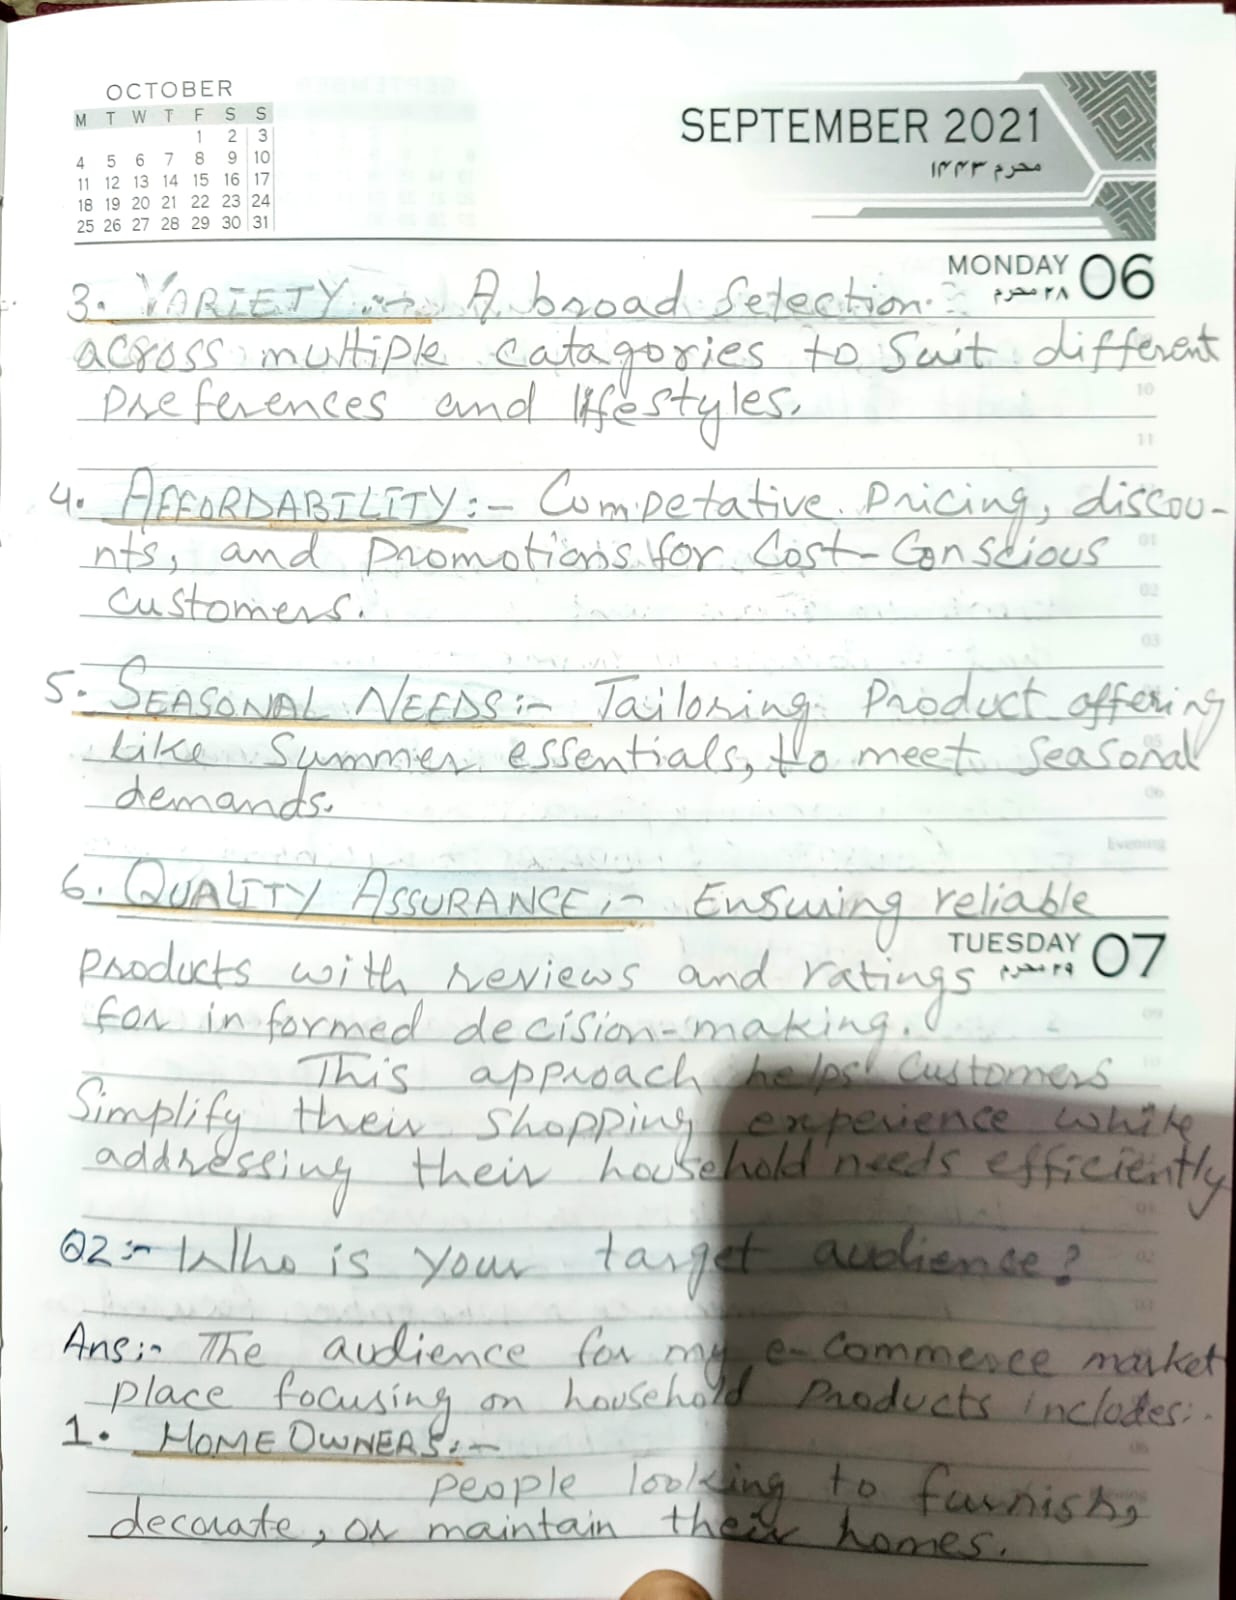 OCTOBER
M T W T F S S
1 2 3
4 5 6 7 8 9 10
11 12 13 14 15 16 17
18 19 20 21 22 23 24
25 26 27 28 29 30 31
SEPTEMBER 2021
محرم ۱۴۴۳
MONDAY 06
۲۸ محرم
3. VARIETY :- A broad Selection
across multiple catagories to Suit different
preferences and lifestyles.
10
11
4. AFFORDABILITY :- Competative Pricing, discou-
nts, and promotions for Cost-Conscious
01
customers.
02
03
5. SEASONAL NEEDS :- Tailoring Product offering
Like Summer essentials, to meet Seasonal
05
demands.
06
Evening
6. QUALITY ASSURANCE :- Ensuring reliable
TUESDAY 07
۲۹ محرم
products with reviews and ratings
for informed decision-making.
09
10
This approach helps Customers
Simplify their shopping experience while
addressing their household needs efficiently
01
Q2 :- Who is your target audience?
02
03
Ans :- The audience for my e-Commerce market
place focusing on household Products includes :-
1. HOME OWNERS :-
06
people looking to furnish,
decorate, or maintain their homes.